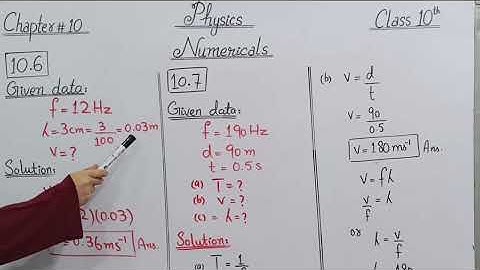 Chapter # 10
Physics
Numericals
Class 10th
10.6
Given data:
f = 12 Hz
λ = 3cm = 3/100 = 0.03m
v = ?
Solution:
)(0.03)
0.36 ms⁻¹ Ans.
10.7
Given data:
f = 190 Hz
d = 90 m
t = 0.5 s
(a) T = ?
(b) v = ?
(c) λ = ?
Solution:
(a) T = 1/
(b) v = d/t
v = 90/0.5
v = 180 ms⁻¹ Ans.
v = fλ
v/f = λ
or λ = v/f
λ = 180